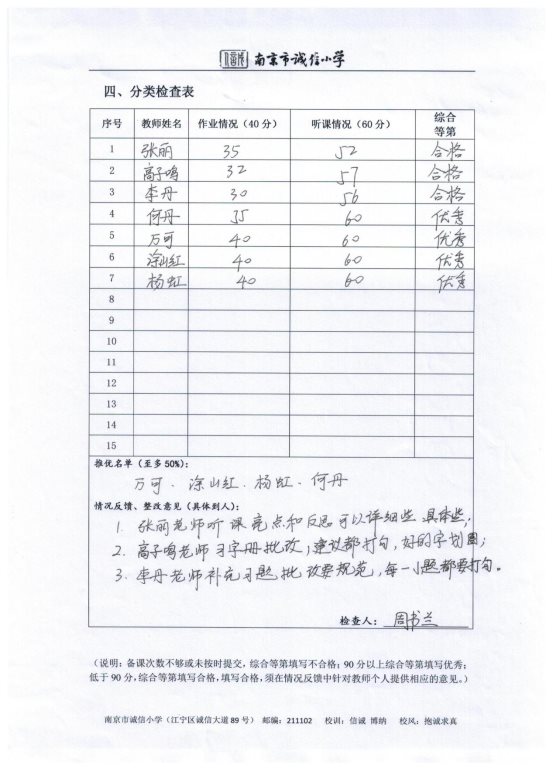 南京市诚信小学
四、分类检查表
序号 教师姓名 作业情况（40分） 听课情况（60分） 综合等第
1 张丽 35 52 合格
2 高子鸣 32 57 合格
3 李丹 30 56 合格
4 何丹 35 60 优秀
5 万可 40 60 优秀
6 涂山红 40 60 优秀
7 杨虹 40 60 优秀
8
9
10
11
12
13
14
15
推优名单（至多50%）：
万可、涂山红、杨虹、何丹
情况反馈、整改意见（具体到人）：
1. 张丽老师听课亮点和反思可以详细些，具体些；
2. 高子鸣老师习字册批改，建议都打勾，好的字划圈；
3. 李丹老师补充习题批改要规范，每一小题都要打勾。
检查人：周书兰
（说明：备课次数不够或未按时提交，综合等第填写不合格；90分以上综合等第填写优秀；
低于90分，综合等第填写合格，填写合格，须在情况反馈中针对教师个人提供相应的意见。）
南京市诚信小学（江宁区诚信大道89号） 邮编：211102 校训：信诚 博纳 校风：抱诚求真